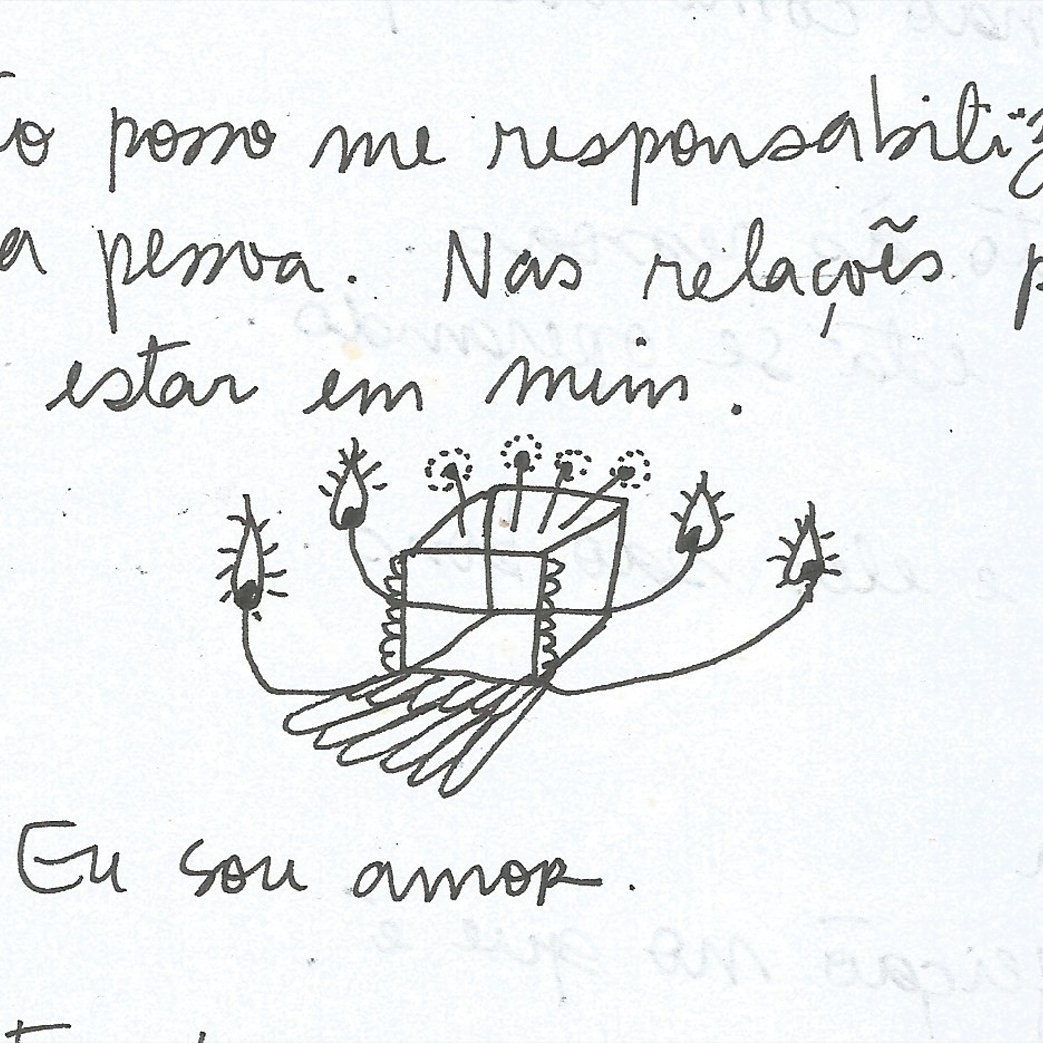 posso me responsabiliz
a pessoa. Nas relações p
estar em mim.
Eu sou amor.